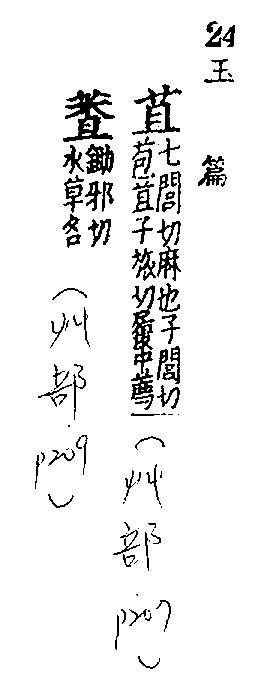 24
玉篇
苴
七閭切麻也子閭切
苞苴子旅切履中薦
(艸部 p207)
鋤邪切
水草名
(艸部 p209)